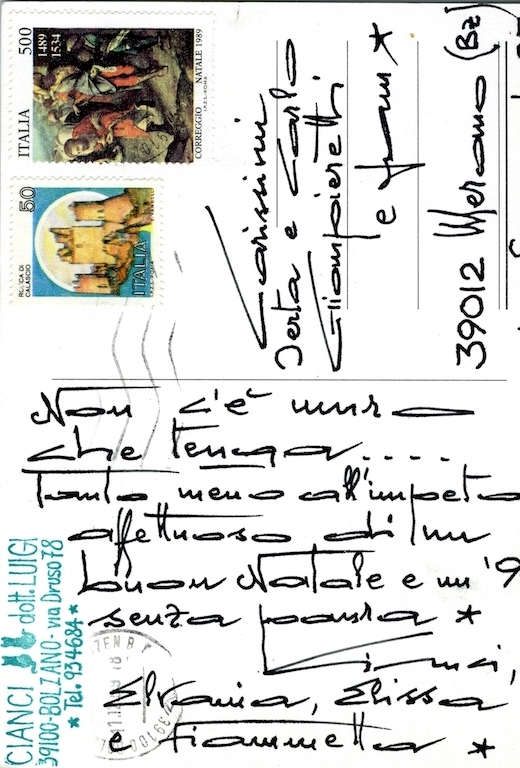 500
1489
1534
ITALIA
CORREGGIO
NATALE 1989
I.P.Z.S. ROMA
50
ROCCA DI
CALASCIO
ITALIA
Carissimi
Berta e Carlo
Giampieretti
e fam *
39012 Merano (Bz)
Non c'è muro
che tenga....
Tanto meno all'impeto
affettuoso di un
buon Natale e un '9
senza paura *
Elissa
e Fiammetta *
CIANCI dott. LUIGI
39100-BOLZANO-via Druso 78
* Tel. 934684 *
39100